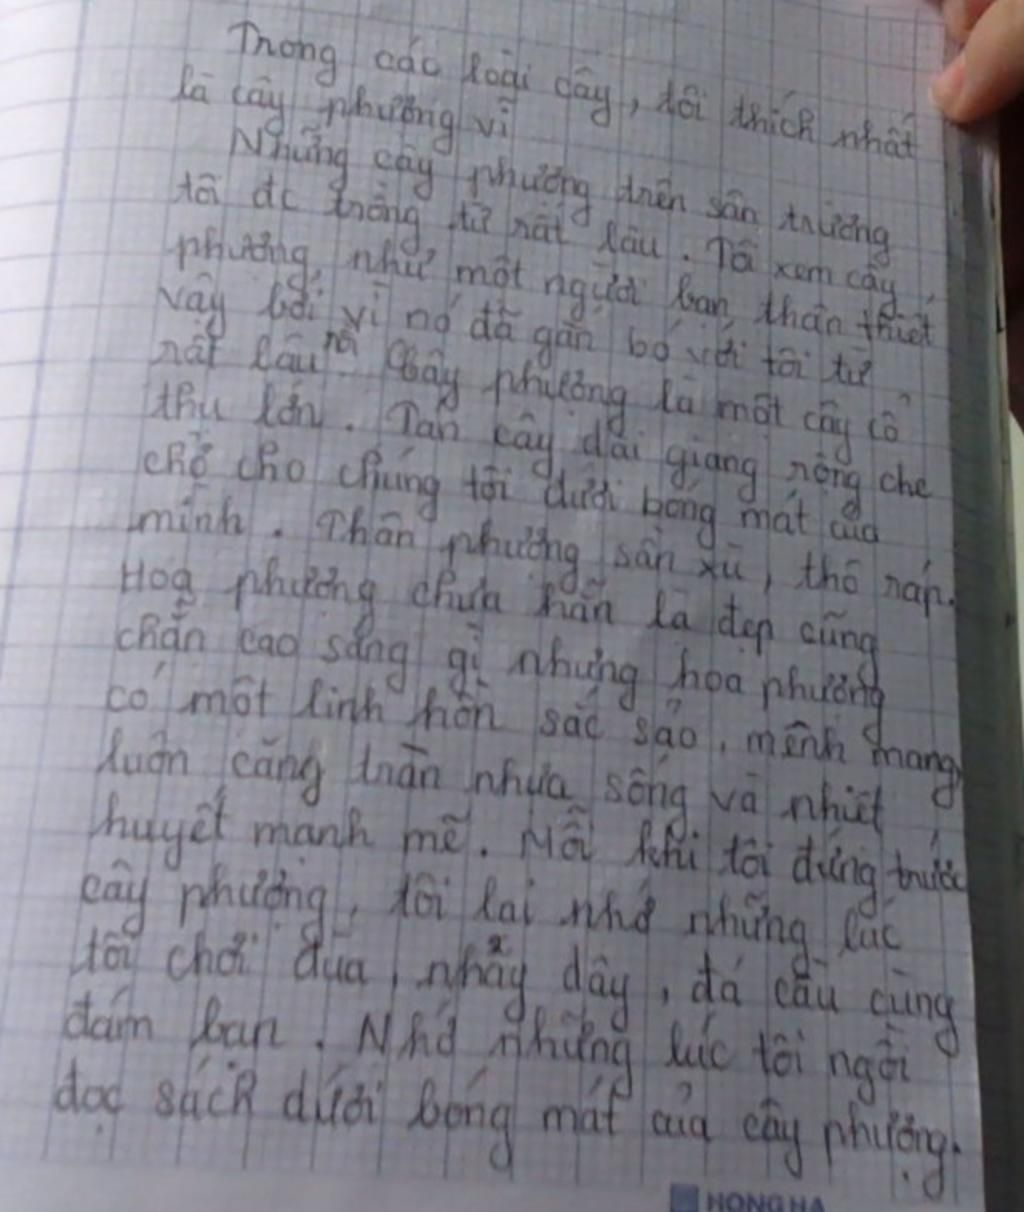 Trong các loài cây, tôi thích nhất
là cây phượng vĩ
Những cây phượng trên sân trường
tôi đc trồng từ rất lâu. Tôi xem cây
phượng như một người bạn thân thiết
vậy bởi vì nó đã gắn bó với tôi từ
rất lâu rồi Cây phượng là một cây cổ
thụ lớn. Tán cây dài giang rộng che
chở cho chúng tôi dưới bóng mát của
mình. Thân phượng sần xù, thô ráp.
Hoa phượng chưa hẳn là đẹp cũng
chẳn cao sang gì nhưng hoa phượng
có một linh hồn sắc sảo, mênh mang,
luôn căng tràn nhựa sống và nhiệt
huyết mạnh mẽ. Mỗi khi tôi đứng trước
cây phượng, tôi lại nhớ những lúc
tôi chơi đùa, nhảy dây, đá cầu cùng
đám bạn. Nhớ những lúc tôi ngồi
đọc sách dưới bóng mát của cây phượng.
HONG HA